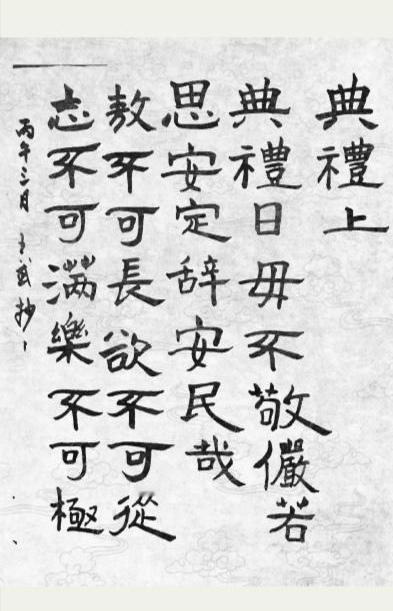 典禮上
典禮日毋不敬儼若
思安定辞安民哉
敖不可長欲不可從
志不可滿樂不可極
丙午三月 抄